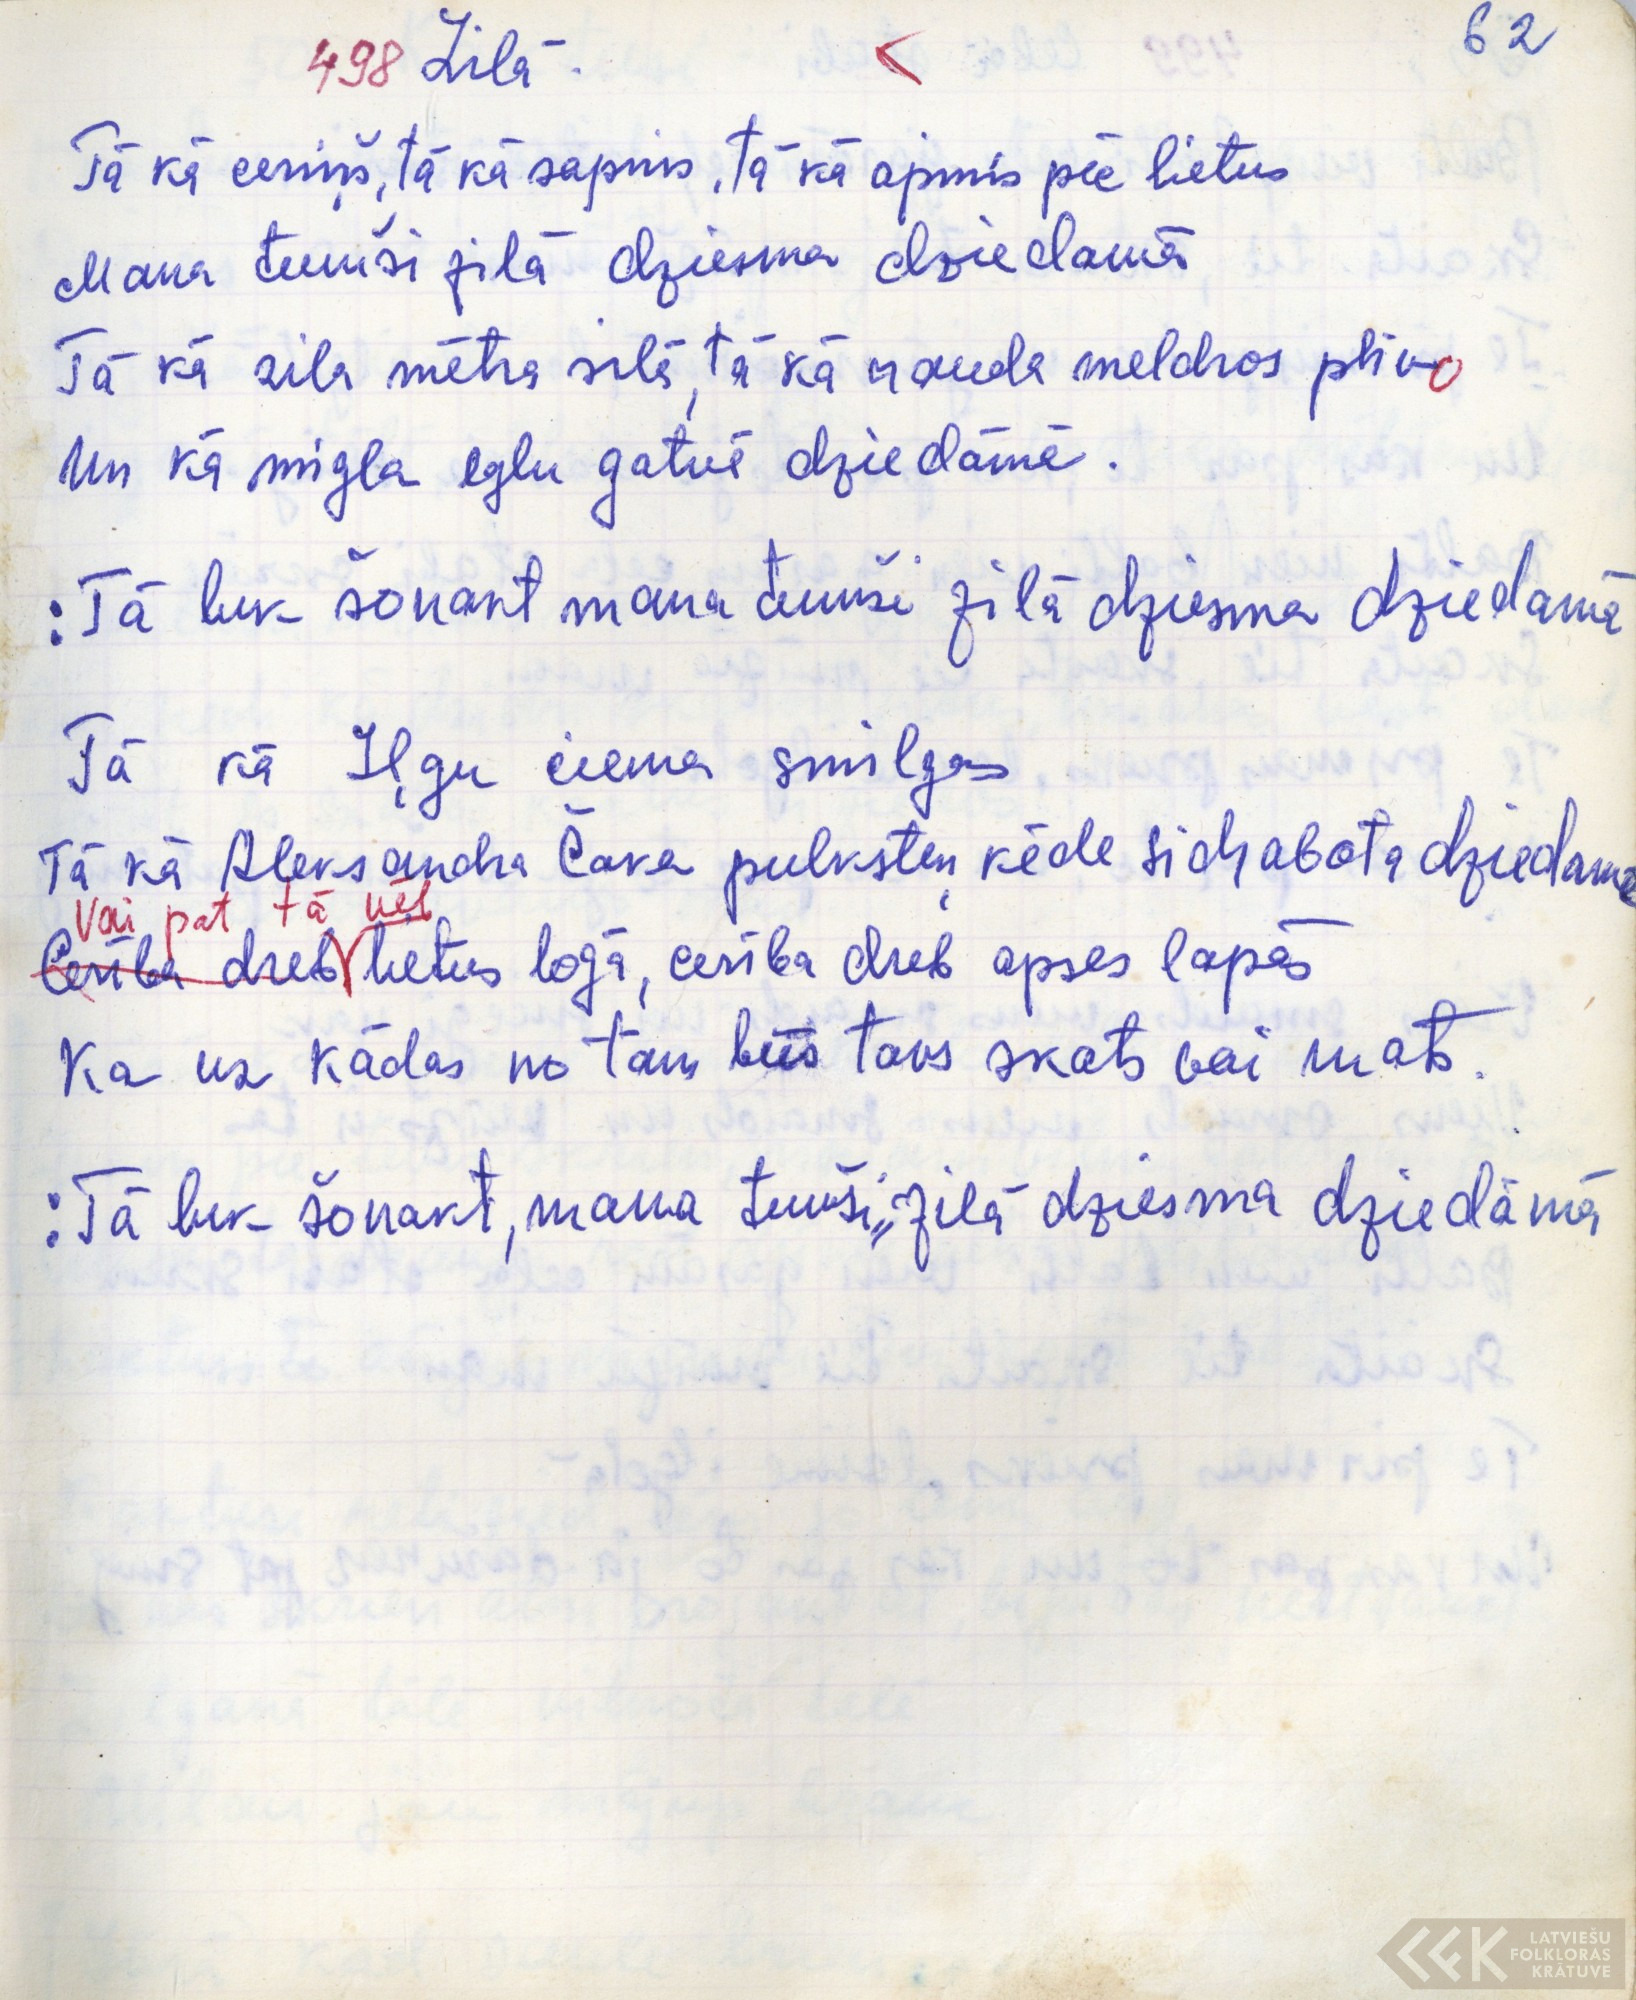 62
498 Zilā.
Tā kā ceriņš, tā kā sapnis, tā kā apinis pēc lietus
Mana tumši zilā dziesma dziedamā
Tā kā zila mētra silā, tā kā rauda meldros plivo
Un kā migla eglu gatvē dziedāmē.
:Tā luk šonakt mana tumši zilā dziesma dziedamā
Tā kā Iļgu ciema smilgas
Tā kā Aleksandra Čaka pulksteņ kēde sidrabota dziedama
Vai pat tā kēt
Cerība dreb lietus logā, cerība dreb apses lapās
Ka uz kādas no tam būs tavs skats vai mats.
:Tā luk šonakt, mana tumši, zilā dziesma dziedāmā
LATVIEŠU
FOLKLORAS
KRĀTUVE